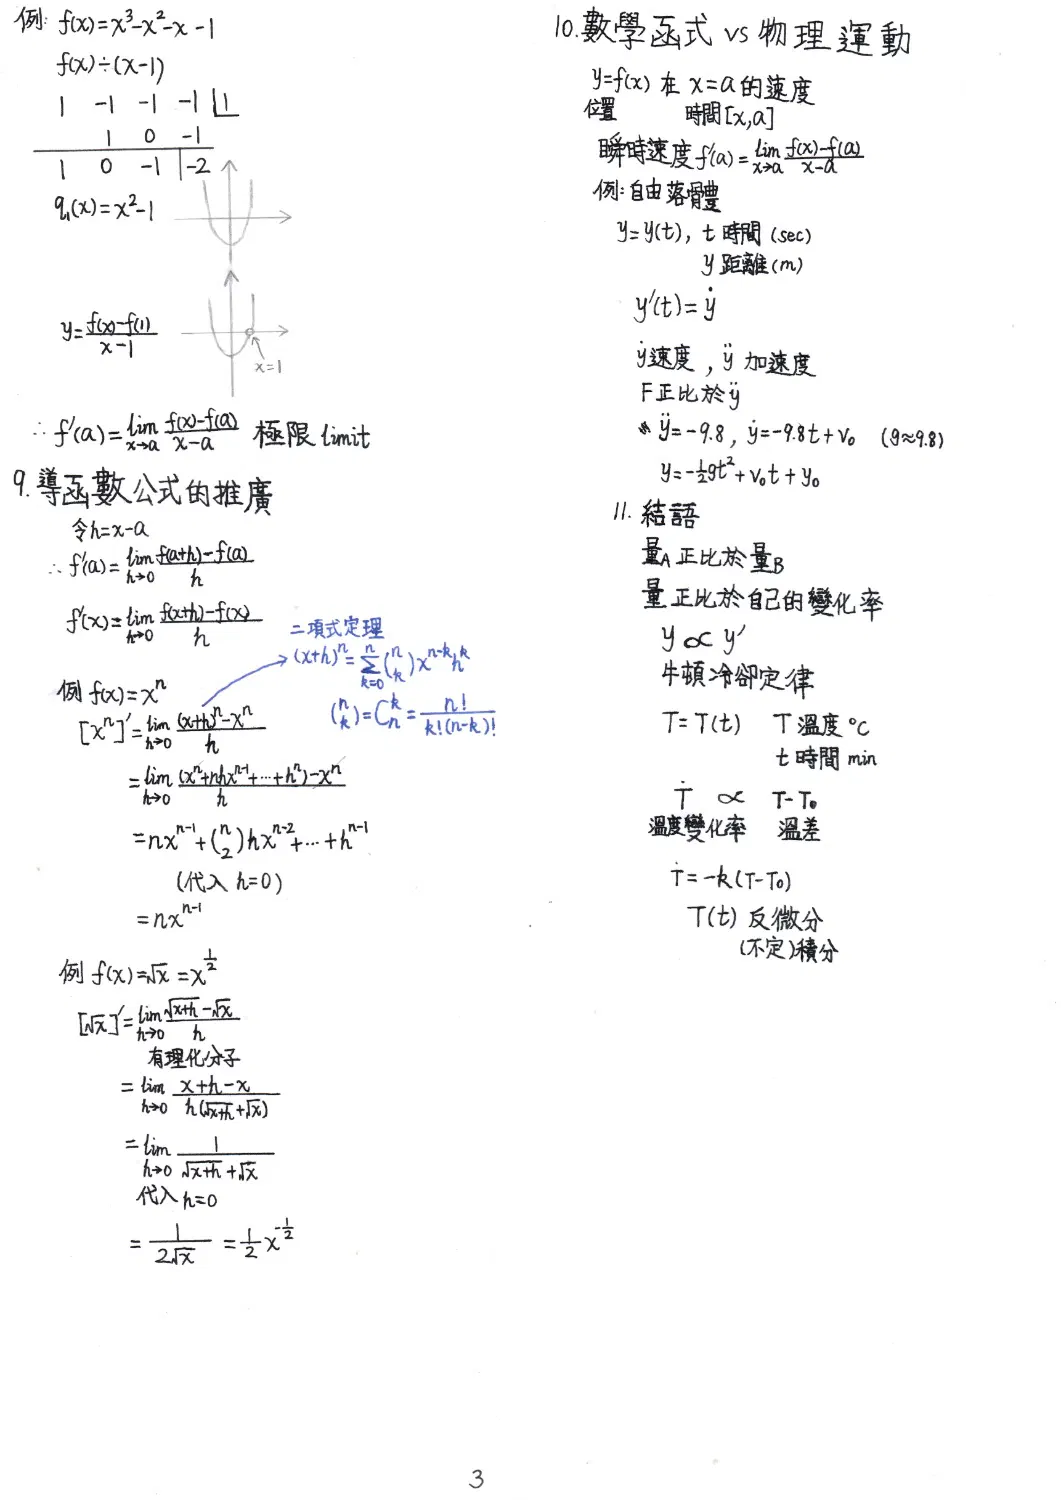 例: f(x)=x³-x²-x-1
f(x)÷(x-1)
1 -1 -1 -1 | 1
1 0 -1
1 0 -1 | -2
q₁(x)=x²-1
y=(f(x)-f(1))/(x-1)
x=1
∴ f'(a)=lim x→a (f(x)-f(a))/(x-a) 極限 limit
9. 導函數公式的推廣
令h=x-a
∴ f'(a)=lim h→0 (f(a+h)-f(a))/h
f'(x)=lim h→0 (f(x+h)-f(x))/h
二項式定理
(x+h)ⁿ=Σ k=0 n (n k) xⁿ⁻ᵏhᵏ
(n k)=Cₙᵏ=n!/(k!(n-k)!)
例 f(x)=xⁿ
[xⁿ]'=lim h→0 ((x+h)ⁿ-xⁿ)/h
=lim h→0 ((xⁿ+nhxⁿ⁻¹+⋯+hⁿ)-xⁿ)/h
=nxⁿ⁻¹+(n 2)hxⁿ⁻²+⋯+hⁿ⁻¹
(代入 h=0)
=nxⁿ⁻¹
例 f(x)=√x=x^(1/2)
[√x]'=lim h→0 (√(x+h)-√x)/h
有理化分子
=lim h→0 (x+h-x)/(h(√(x+h)+√x))
=lim h→0 1/(√(x+h)+√x)
代入 h=0
=1/(2√x) =1/2 x^(-1/2)
10. 數學函式 vs 物理運動
y=f(x) 在 x=a 的速度
位置 時間[x,a]
瞬時速度 f'(a)=lim x→a (f(x)-f(a))/(x-a)
例:自由落體
y=y(t), t 時間 (sec)
y 距離 (m)
y'(t)=ẏ
ẏ 速度 , ÿ 加速度
F 正比於 ÿ
ÿ=-9.8, ẏ=-9.8t+v₀ (g≈9.8)
y=-½gt²+v₀t+y₀
11. 結語
量A 正比於 量B
量正比於自己的變化率
y ∝ y'
牛頓冷卻定律
T=T(t) T 溫度 °C
t 時間 min
Ṫ ∝ T-T₀
溫度變化率 溫差
Ṫ=-k(T-T₀)
T(t) 反微分
(不定)積分
3